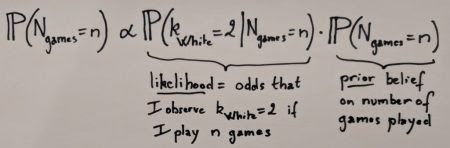 ℙ(N_games=n) ∝ ℙ(k_White=2|N_games=n) · ℙ(N_games=n)
likelihood = odds that
I observe k_White=2 if
I play n games
prior belief
on number of
games played